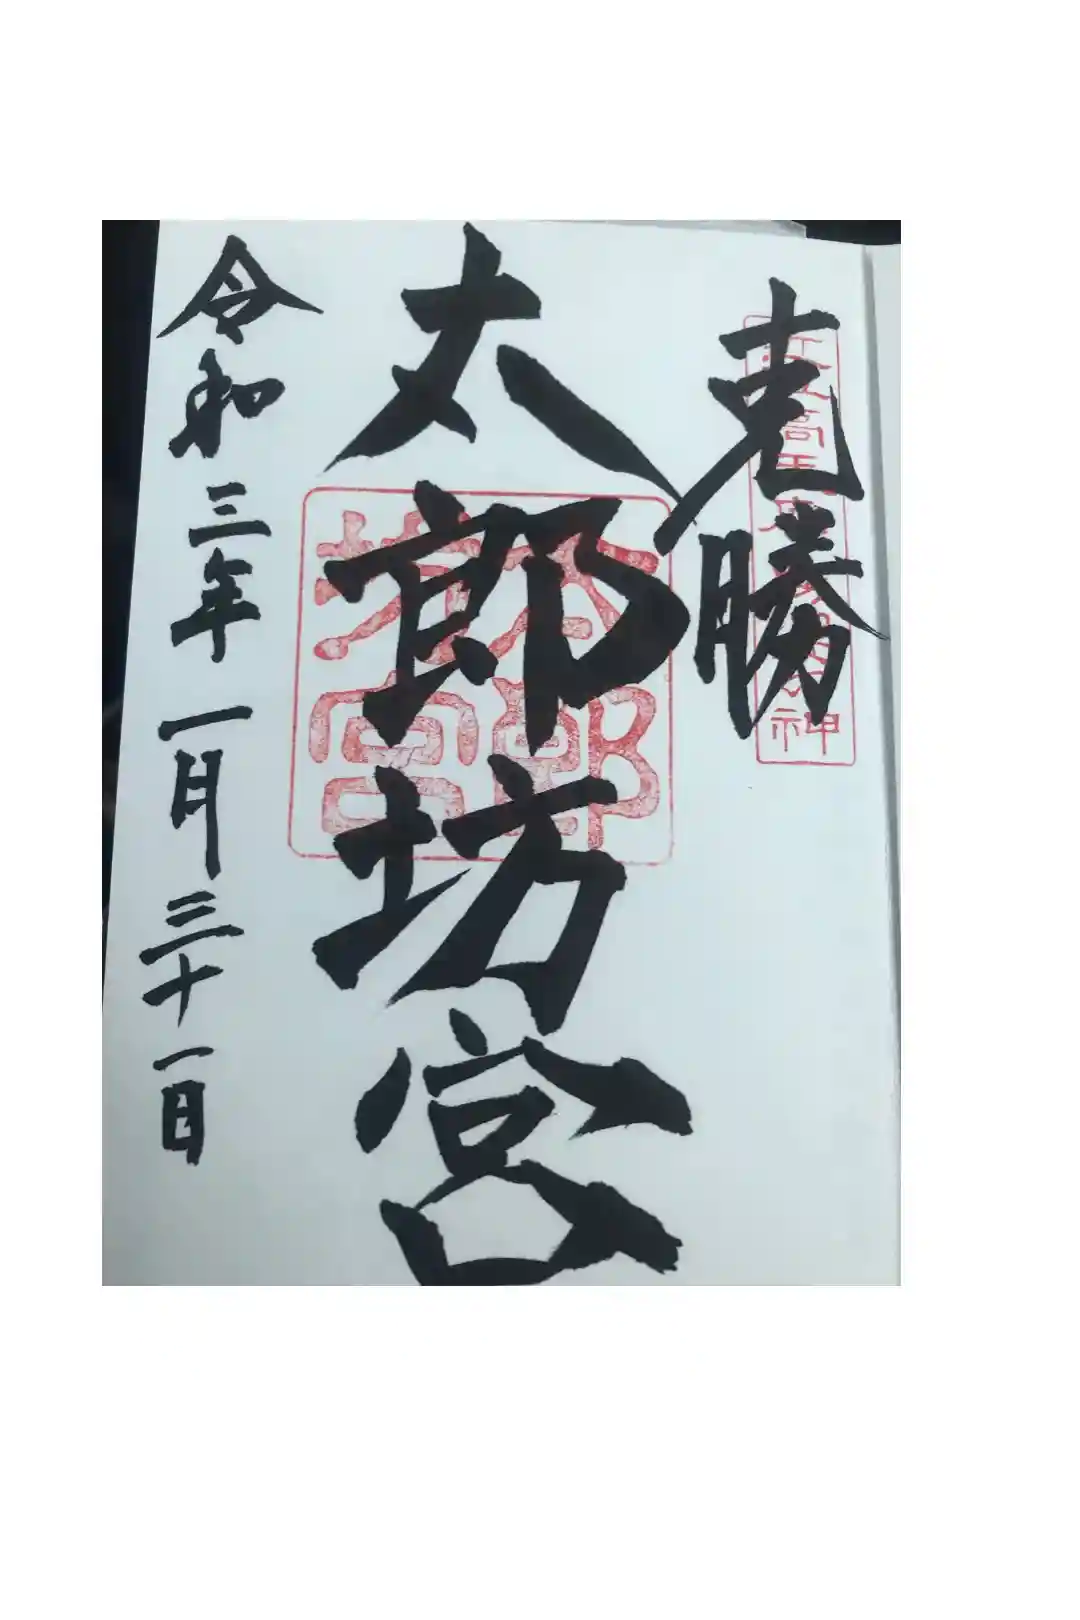 克勝
太郎坊宮
太郎坊宮
令和三年一月三十一日